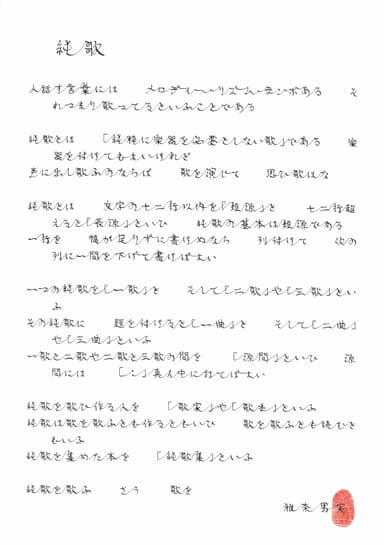 純歌
人話す言葉には　メロディー・リズム・テンポある　そ
れつまり歌ってるといふことである
純歌とは　「純粋に楽器を必要としない歌」である　楽
器を付けてもよいけれど
声に出し歌ふのならば　歌を演じて　思ひ歌はな
純歌とは　文字の七二行以内を「短源」と　七二行超
えると「長源」といひ　純歌の基本は短源である
一行を　幅が足りずに書けぬなら　列付けて　次の
列に一間を下げて書けばよい
一つの純歌を「一歌」と　そして「二歌」や「三歌」とい
ふ
その純歌に　題を付けると「一曲」と　そして「二曲」
や「三曲」といふ
一歌と二歌や二歌と三歌の間を　「源間」といひ　源
間には　「:」真ん中に打てばよい
純歌を歌ひ作る人を　「歌実」や「歌士」といふ
純歌は歌を歌ふとも作るともいひ　歌を歌ふとも読むと
もいふ
純歌を集めた本を　「純歌集」といふ
純歌を歌ふ　さう　歌を
雅奈男実